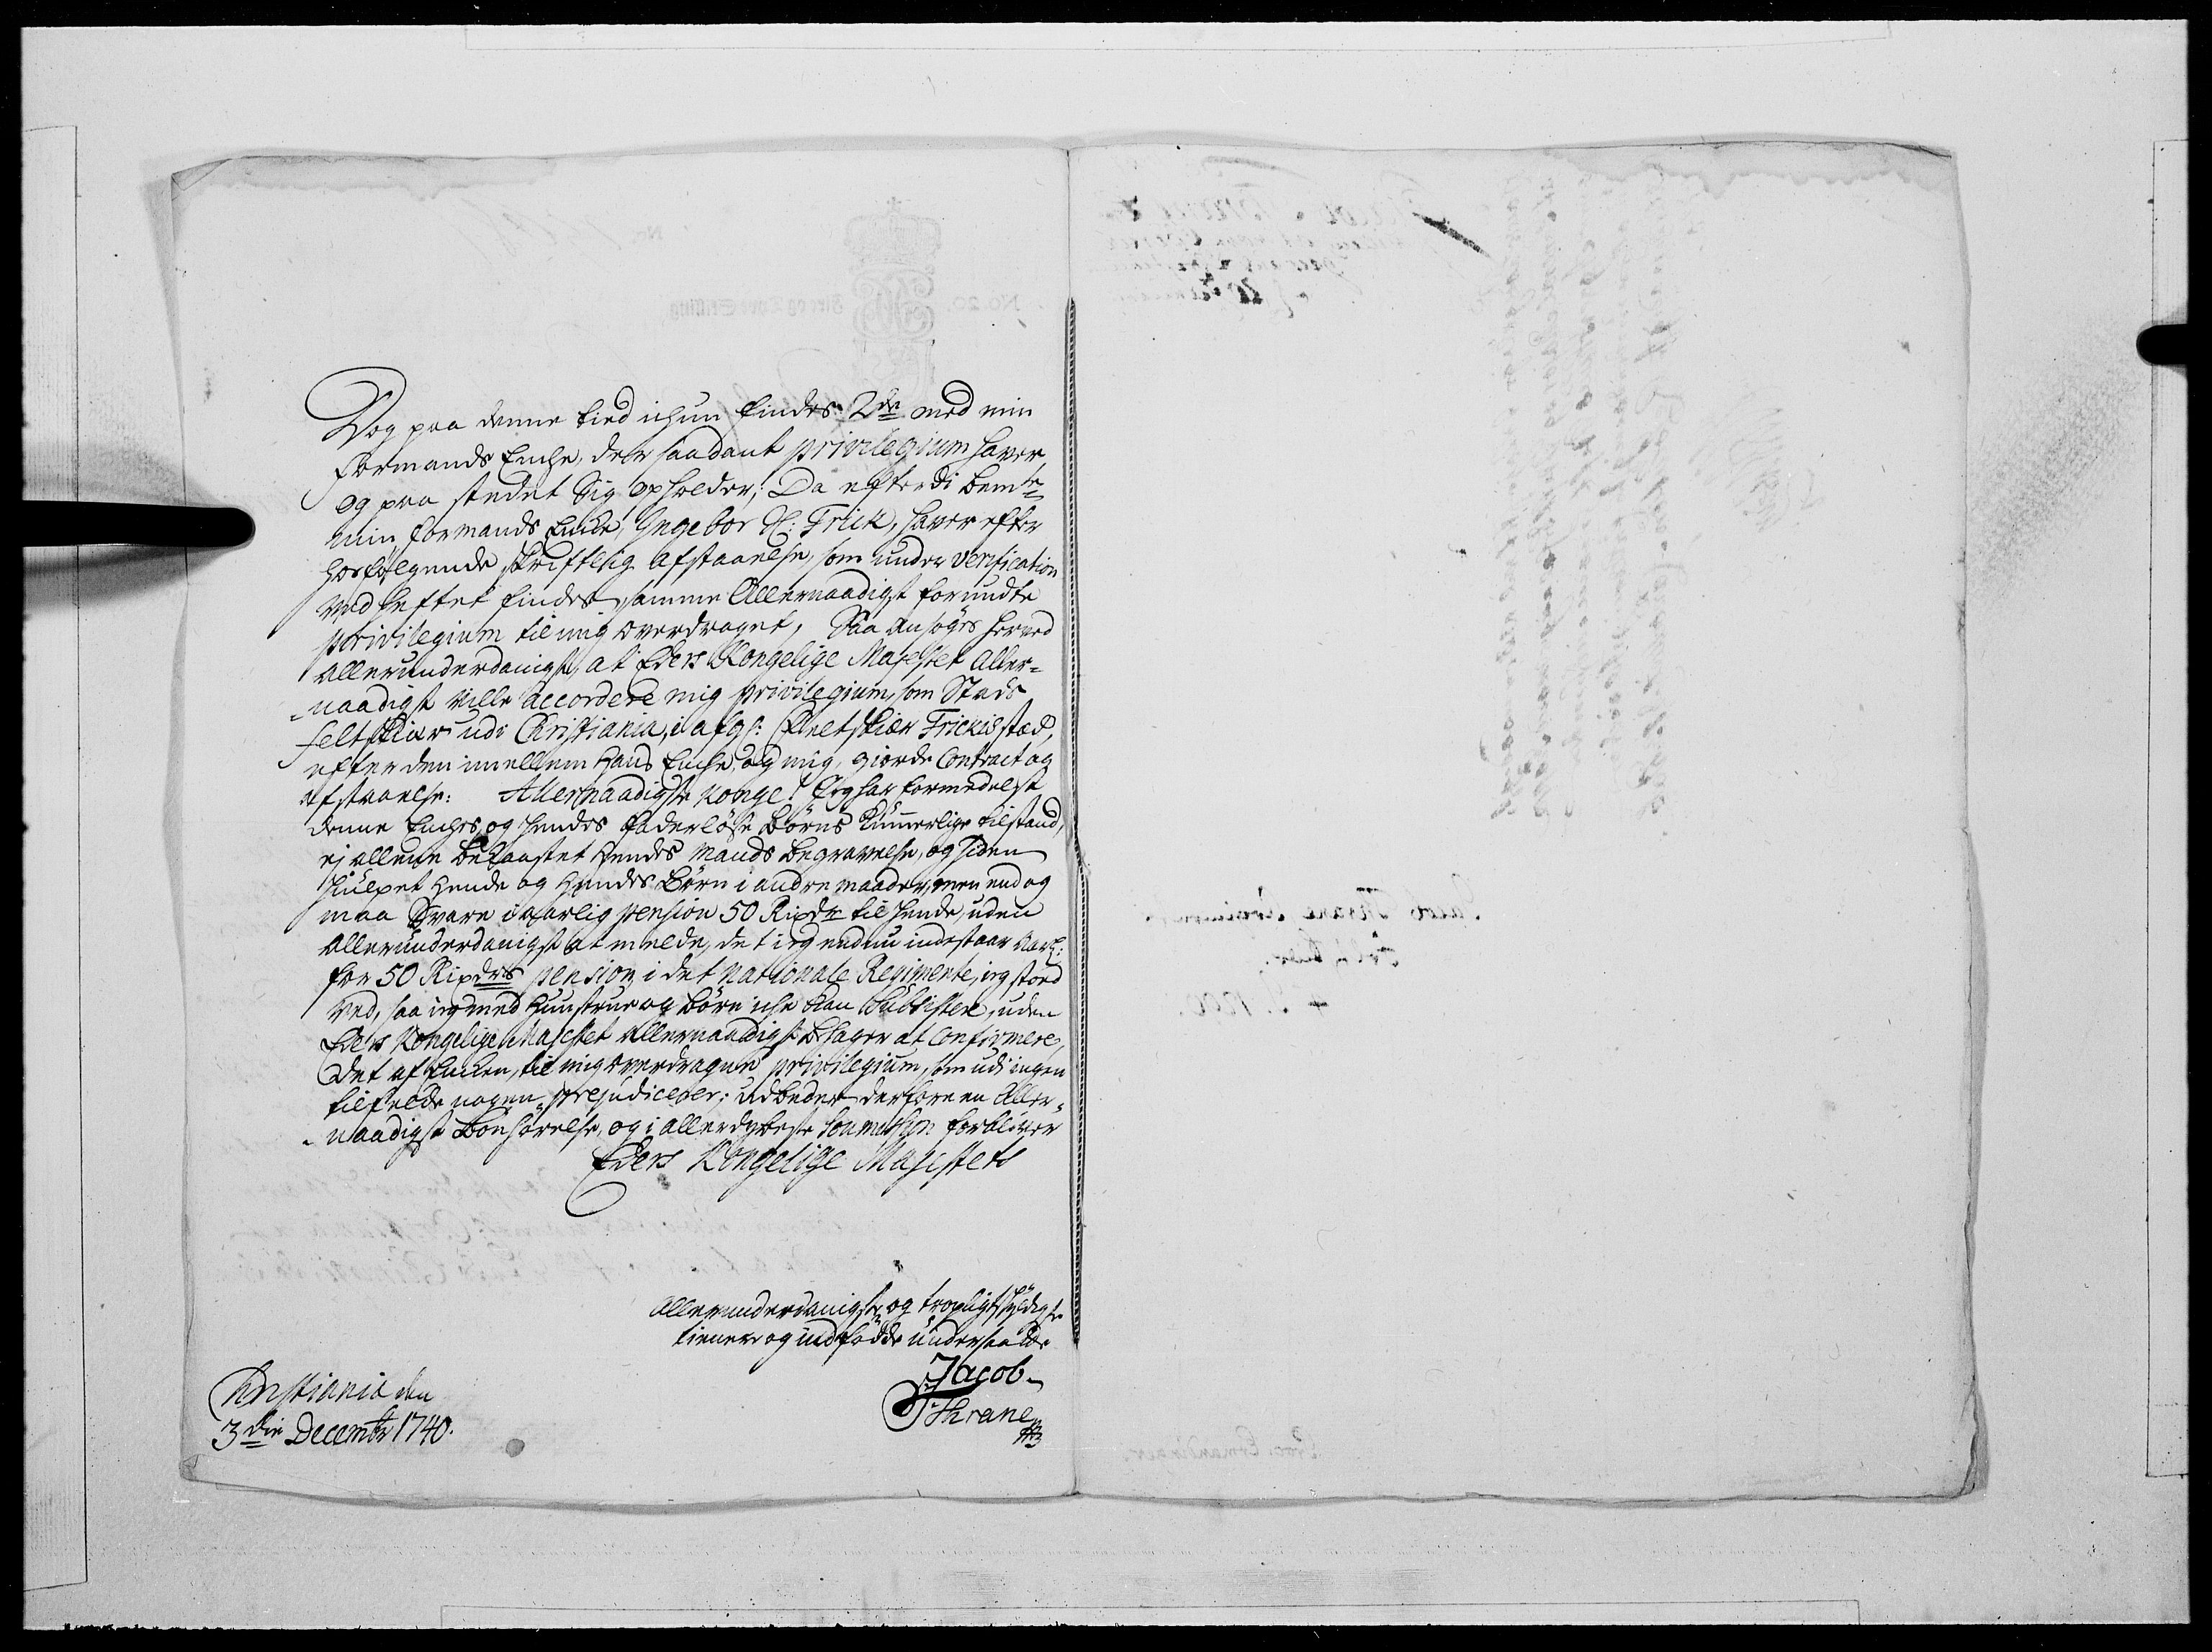 Dog paa denne tied ichun findes 2de med min
formands Enche, der saadant privilegium haver
og paa stedet Sig opholder; Da efterdi bemte
min formands Enche, Yngebor H: Frick, haver efter
hosfølgende skriftlig afstaaelse, som under verification
ved heftet findes, samme Allernaadigst forundte
privilegium til mig overdraget, Saa Ansøges herved
allerunderdanigst, at Eders Kongelige Majestet Aller-
naadigst ville accordere mig privilegium, som Stads
feltskiær udi Christiania, i afg: feltskiær Frickes stæd,
efter den imellem hans Enche, og mig, giorde Contract og
afstaaelse: Allernaadigste Konge! Jeg har formedelst
denne Enches, og hendes faderløse Børns kummerlige tilstand,
ej allene bekaastet hendes mands begravelse, og siden
hiulpet hende og hendes Børn i andre maader, men end og
maa Svare aarlig pension 50 Rixdr til hende, uden
allerunderdanigst at melde, det jeg endnu indestaar Aarl:
for 50 Rixdrs pension i det nationale Regimente, jeg stoed
ved, saa jeg med hunstrue og børn iche kan Subsistere, uden
Eders Kongelige Majestet allernaadigst behager at Confirmere,
Det af Enchen, til mig overdragne privilegium, som udi ingen
tilfelde nogen præjudicerer; udbeder derfore en Aller-
naadigst Bønhørelse, og i allerdybeste Soumission forbliver
Eders Kongelige Majestets
allerunderdanigste og troepligtskyldigste
tienere og indfødde undersaatte
Jacob
Thrane
Christiania den
3die Decembr 1740.